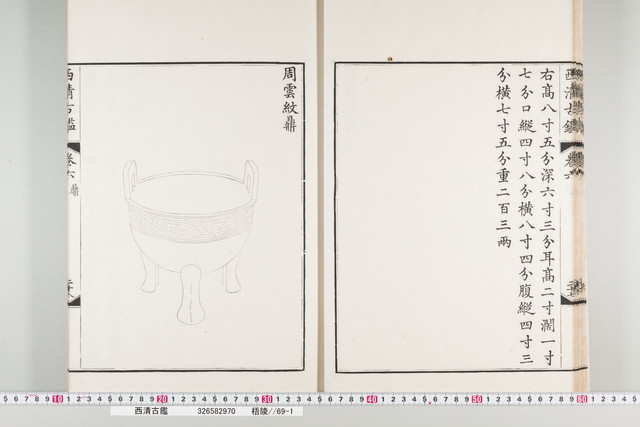 右高八寸五分深六寸三分耳高二寸濶一寸
七分口縱四寸八分橫八寸四分腹縱四寸三
分橫七寸五分重二百三兩
周雲紋鼎
西清古鑑
卷六
鼎
西清古鑑 326582970 梧陵//69-1